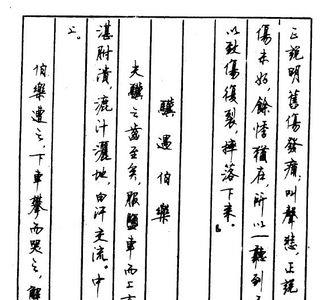 正說明舊傷發痛，叫聲悲，正說
傷未好，餘悸猶在，所以一聽到
以致傷復裂，摔落下來。
驥遇伯樂
夫驥之齒至矣，服鹽車而上
湛胕潰，漉汁灑地，白汗交流。中
上。
伯樂遭之，下車攀而哭之，解